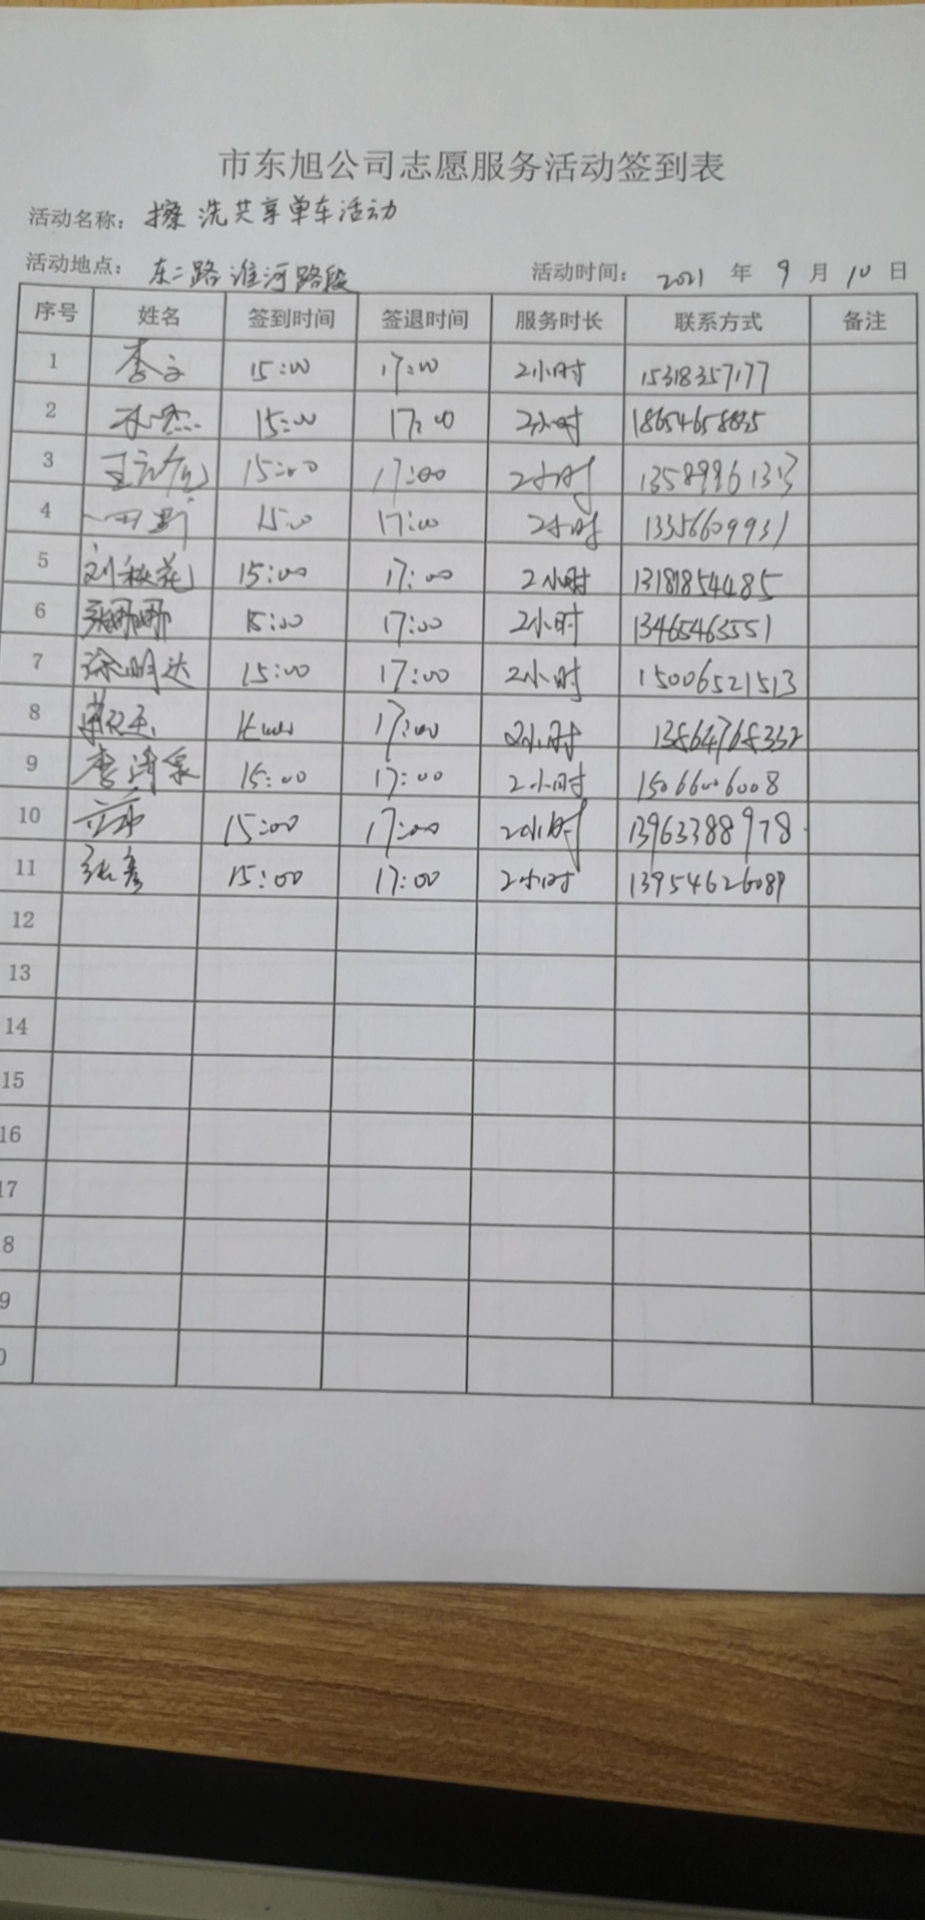 市东旭公司志愿服务活动签到表
活动名称: 擦洗共享单车活动
活动地点: 东二路淮河路段 活动时间: 2021 年 9 月 10 日
序号 姓名 签到时间 签退时间 服务时长 联系方式 备注
1 李文 15:00 17:00 2小时 15318357177
2 15:00 17:00 2小时
3 15:00 17:00 2小时
4 17:00 2小时 13356609931
5 刘秋花 15:00 17:00 2小时 13181854485
6 15:00 17:00 2小时 13465465551
7 徐明达 15:00 17:00 2小时 15006521513
8 17:00 2小时
9 15:00 17:00 2小时 15066006008
10 15:00 17:00 2小时 13963388978
11 张彦 15:00 17:00 2小时 13954626089
12
13
14
15
16
17
8
9
0